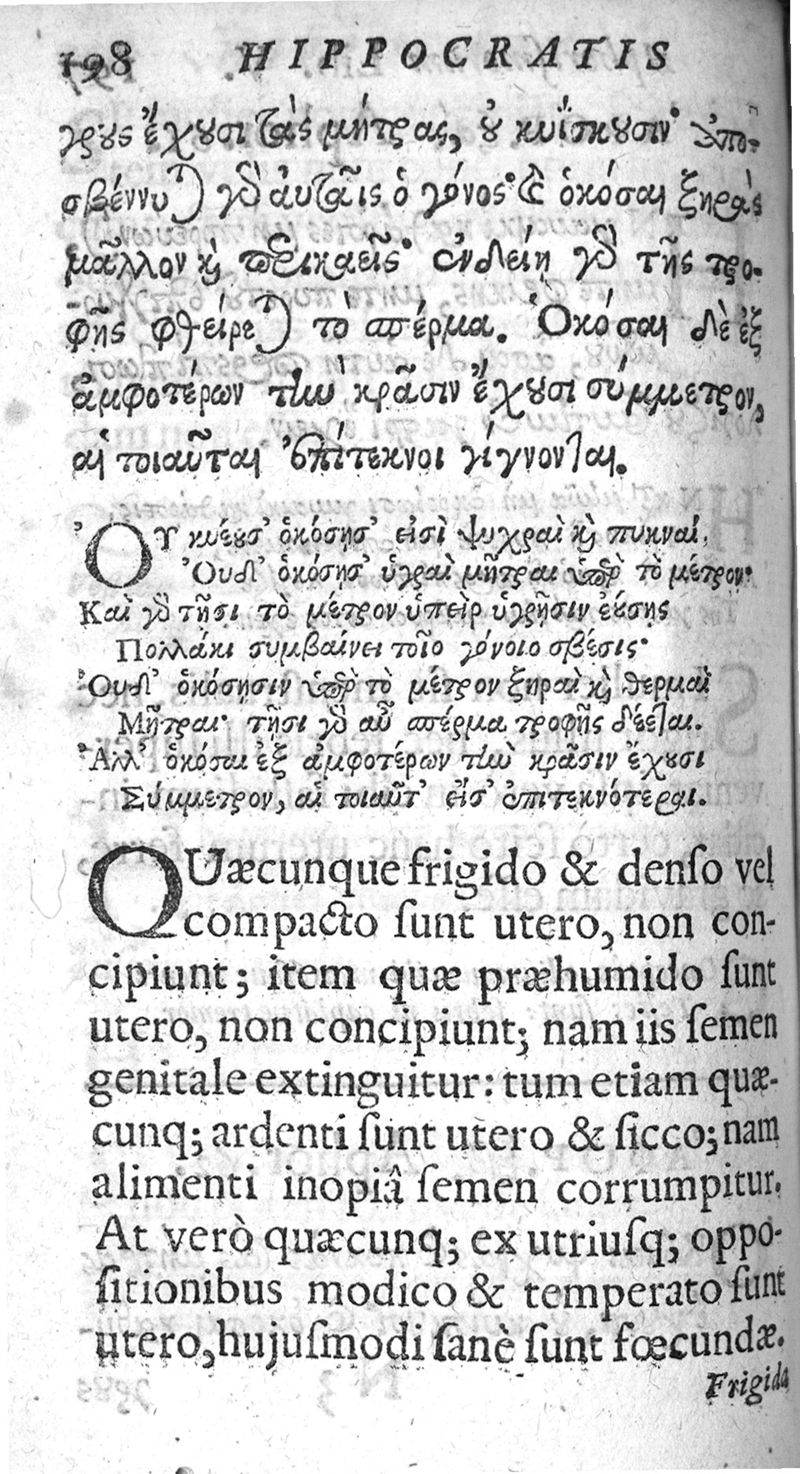 198 HIPPOCRATIS
γρους ἔχουσι τὰς μήτρας, οὐ κυΐσκουσιν· ἀπο-
σβέννυται γὰρ αὐταῖς ὁ γόνος· καὶ ὁκόσαι ξηρὰς
μᾶλλον καὶ περικαεῖς· ἐνδείῃ γὰρ τῆς τρο-
φῆς φθείρεται τὸ σπέρμα. Ὁκόσαι δὲ ἐξ
ἀμφοτέρων τὴν κρᾶσιν ἔχουσι σύμμετρον,
αἱ τοιαῦται ἐπίτεκνοι γίγνονται.
Οὐ κύουσ' ὁκόσῃσ' εἰσὶ ψυχραὶ καὶ πυκναί,
Οὐδ' ὁκόσῃσ' ὑγραὶ μῆτραι ὑπὲρ τὸ μέτρον·
Καὶ γὰρ τῇσι τὸ μέτρον ὑπεὶρ ὑγρῇσιν ἐούσῃς
Πολλάκι συμβαίνει τοῖο γόνοιο σβέσις·
Οὐδ' ὁκόσῃσιν ὑπὲρ τὸ μέτρον ξηραὶ καὶ θερμαὶ
Μῆτραι· τῇσι γὰρ αὖ σπέρμα τροφῆς δέεται.
Ἀλλ' ὁκόσαι ἐξ ἀμφοτέρων τὴν κρᾶσιν ἔχουσι
Σύμμετρον, αἱ τοιαῦτ' εἰσ' ἐπιτεκνότεραι.
QUæcunque frigido & denſo vel
compacto ſunt utero, non con-
cipiunt; item quæ præhumido ſunt
utero, non concipiunt; nam iis ſemen
genitale extinguitur: tum etiam quæ-
cunq; ardenti ſunt utero & ſicco; nam
alimenti inopiâ ſemen corrumpitur.
At verò quæcunq; ex utriuſq; oppo-
ſitionibus modico & temperato ſunt
utero, hujuſmodi ſanè ſunt fœcundæ.
Frigida